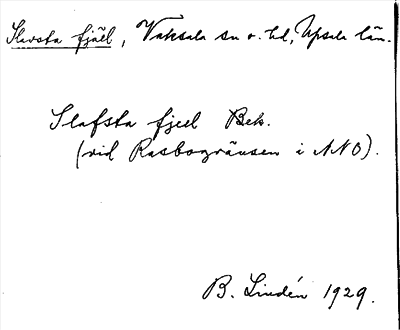 Slavsta fjäll, Vaksala sn o. hd, Upsala län.
Slafsta fjell Bek.
(vid Rasbogränsen i NNO).
B. Lindén 1929.